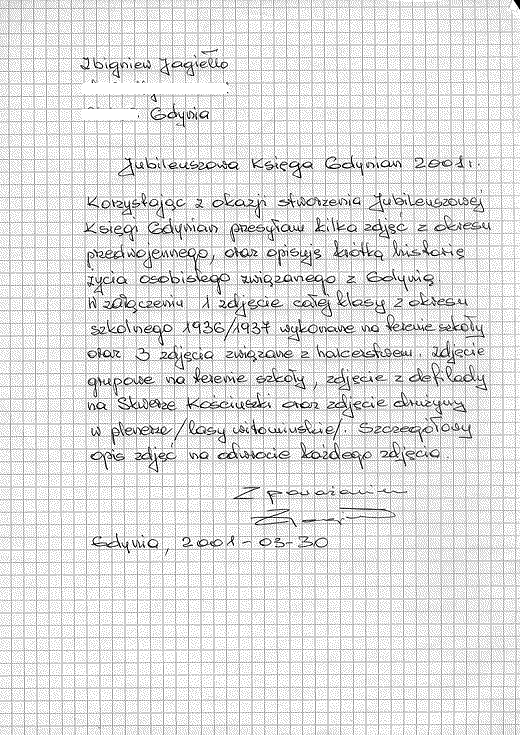 Zbigniew Jagiełło
Gdynia
Jubileuszowa Księga Gdynian 2001r.
Korzystając z okazji stworzenia Jubileuszowej
Księgi Gdynian przesyłam kilka zdjęć z okresu
przedwojennego, oraz opisuję krótką historię
życia osobistego związanego z Gdynią.
W załączeniu 1 zdjęcie całej klasy z okresu
szkolnego 1936/1937 wykonane na terenie szkoły
oraz 3 zdjęcia związane z harcerstwem. Zdjęcie
grupowe na terenie szkoły, zdjęcie z defilady
na Skwerze Kościuszki oraz zdjęcie drużyny
w plenerze /lasy witomińskie/. Szczegółowy
opis zdjęć na odwrocie każdego zdjęcia.
Z poważaniem
Gdynia, 2001-03-30